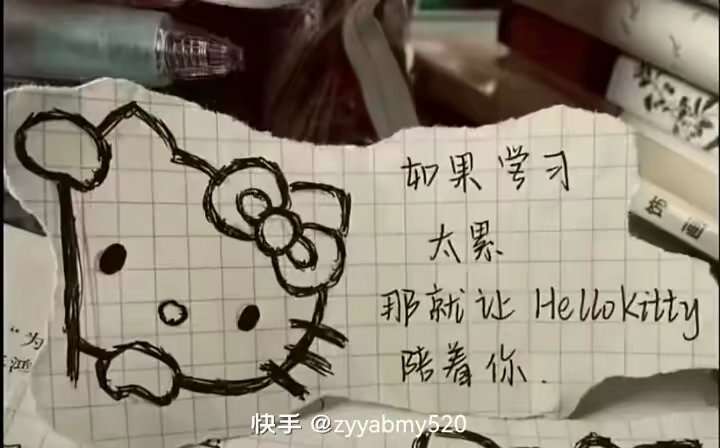 如果学习
太累
那就让 HelloKitty
陪着你.
"为
快手 @zyyabmy520